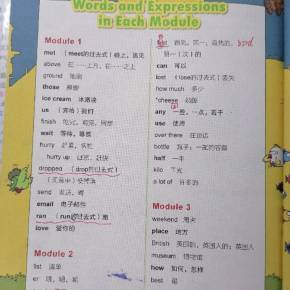 Words and Expressions
in Each Module
Module 1
met (meet的过去式) 碰上,遇见
above 在……上方,在……之上
ground 地面
those 那些
ice cream 冰激凌
us (宾格) 我们
finish 吃完,喝完,用尽
wait 等待,等候
hurry 赶紧,急忙
hurry up 赶紧,赶快
dropped (drop的过去式)
(无意中)使掉落
send 发送,寄
email 电子邮件
ran (run的过去式) 跑
love 爱你的
Module 2
list 清单
can 可以
lost (lose的过去式) 丢失
how much 多少
cheese 奶酪
any 一些,一点,若干
use 使用
over there 在那边
bottle 瓶子;一瓶的容量
half 一半
kilo 千克
a lot of 许多的
Module 3
weekend 周末
place 地方
British 英国的,英国人的;英国人
museum 博物馆
how 如何,怎样
best 最